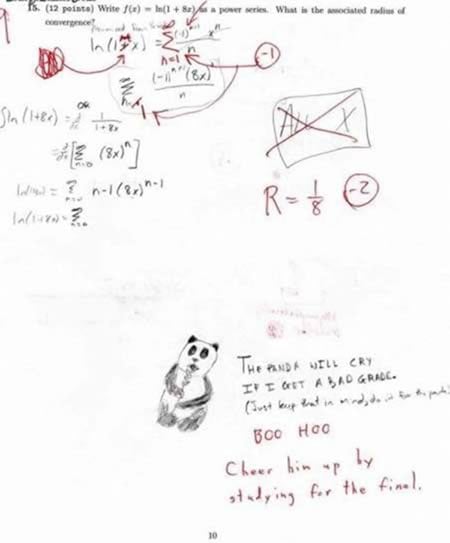 15. (12 points) Write f(x) = ln(1 + 8x) as a power series. What is the associated radius of
convergence?
ln(1+x) = Σ n=1 (-1)ⁿ⁺¹ xⁿ / n
-1
Σ (-1)ⁿ⁺¹ (8x)ⁿ / n
OR
ln(1+8x) = 1 / 1+8x
= [Σ n=0 (8x)ⁿ]
= Σ n=0 n-1(8x)ⁿ⁻¹
ln(1+8x) = Σ n=0
All X
R = 1/8 -2
THE PANDA WILL CRY
IF I GET A BAD GRADE.
(Just keep that in mind, do it for the panda)
BOO HOO
Cheer him up by
studying for the final.
10